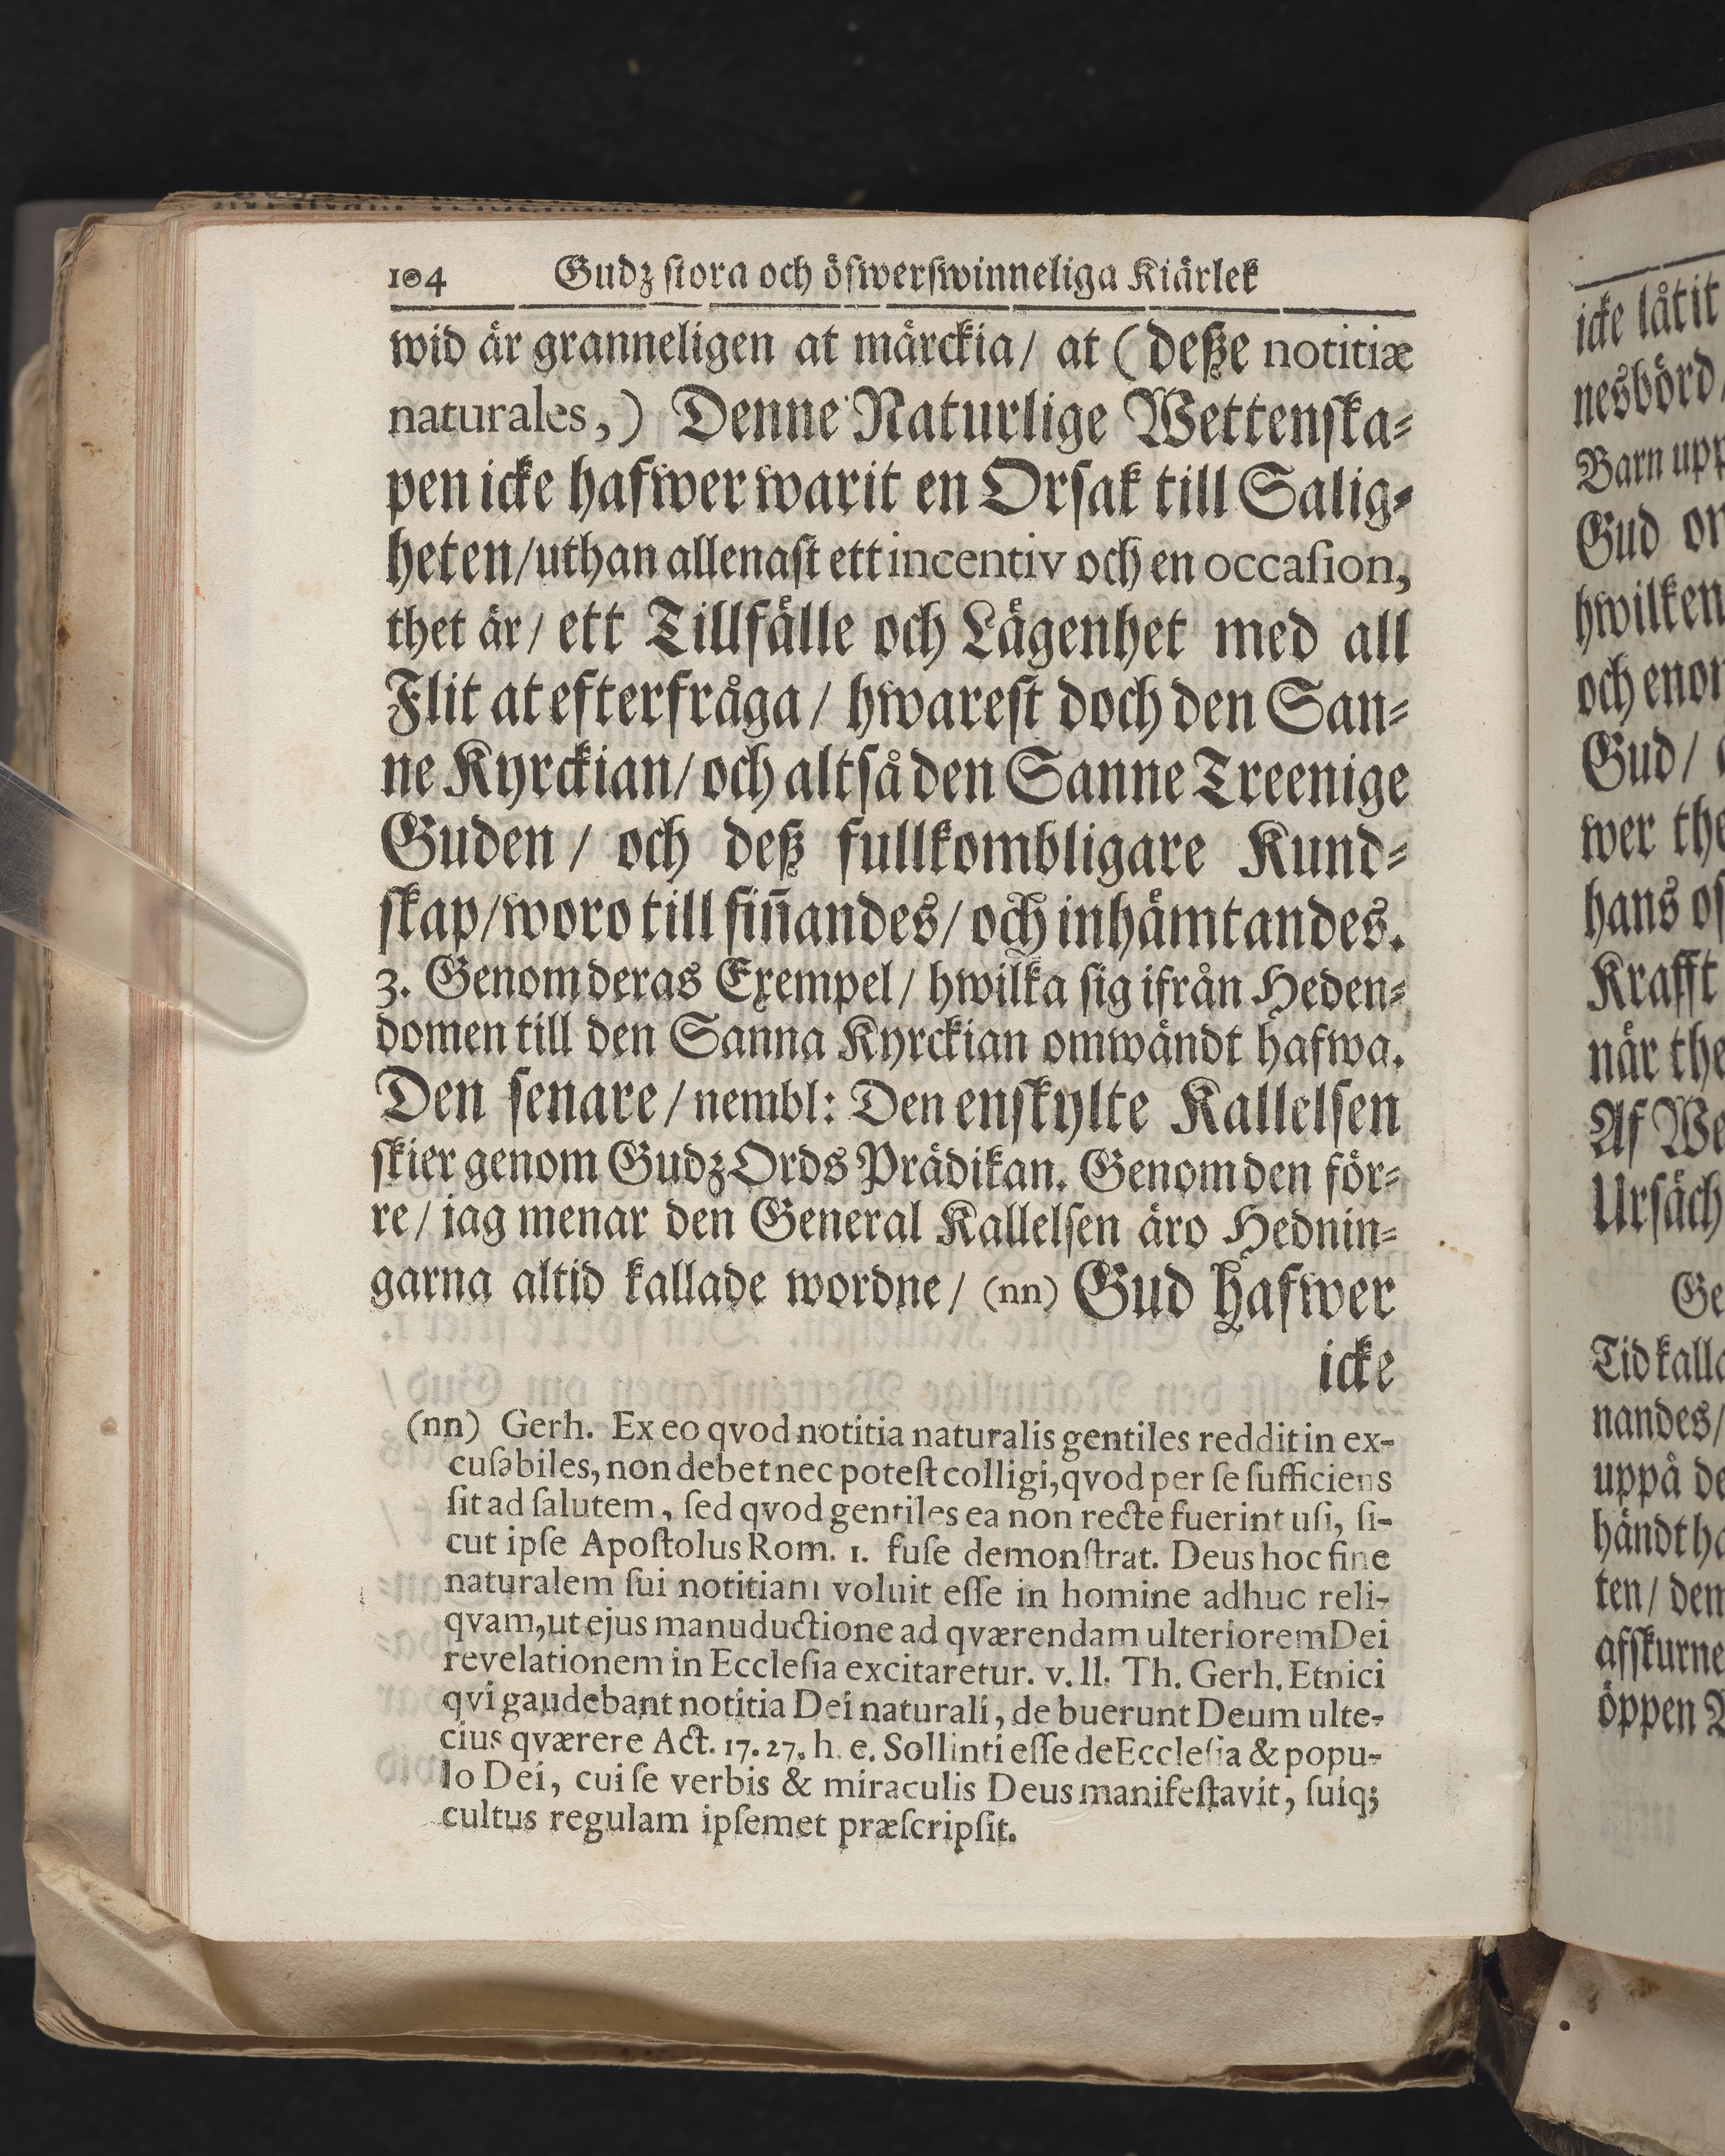 104 Gudz stora och öfwerswinneliga Kiärlek
wid är granneligen at märckia/ at (deße notitiæ
naturales,) Denne Naturlige Wettenska-
pen icke hafwer warit en Orsak till Salig-
heten/uthan allenast ett incentiv och en occasion,
thet är/ ett Tillfälle och Lägenhet med all
Flit at efterfråga/ hwarest doch den San-
ne Kyrckian/ och altså den Sanne Treenige
Guden/ och deß fullkombligare Kund-
skap/woro till fiñandes/ och inhämtandes.
3. Genom deras Exempel/ hwilka sig ifrån Heden-
domen till den Sanna Kyrckian omwändt hafwa.
Den senare/ nembl: Den enskylte Kallelsen
skier genom Gudz Ords Prädikan. Genom den för-
re/ jag menar den General Kallelsen äro Hednin-
garna altid kallade wordne/ (nn) Gud hafwer
icke
(nn) Gerh. Ex eo qvod notitia naturalis gentiles reddit in ex-
cusabiles, non debet nec potest colligi, qvod per se sufficiens
sit ad salutem, sed qvod gentiles ea non recte fuerint usi, si-
cut ipse Apostolus Rom. 1. fuse demonstrat. Deus hoc fine
naturalem sui notitiam voluit esse in homine adhuc reli-
qvam, ut ejus manuductione ad qværendam ulteriorem Dei
revelationem in Ecclesia excitaretur. v. ll. Th. Gerh. Etnici
qvi gaudebant notitia Dei naturali, de buerunt Deum ulte-
cius qværere Act. 17. 27. h. e. Sollinti esse de Ecclesia & popu-
lo Dei, cui se verbis & miraculis Deus manifestavit, suiq;
cultus regulam ipsemet præscripsit.
icke låtit
nesbörd/
Barn upp
Gud
hwilken
och
Gud/
wer the
hans
Krafft
när the
Af We
Ursäch
Ge
Tid kalla
nandes/
uppå de
händt ha
ten/ dem
afskurne
öppen